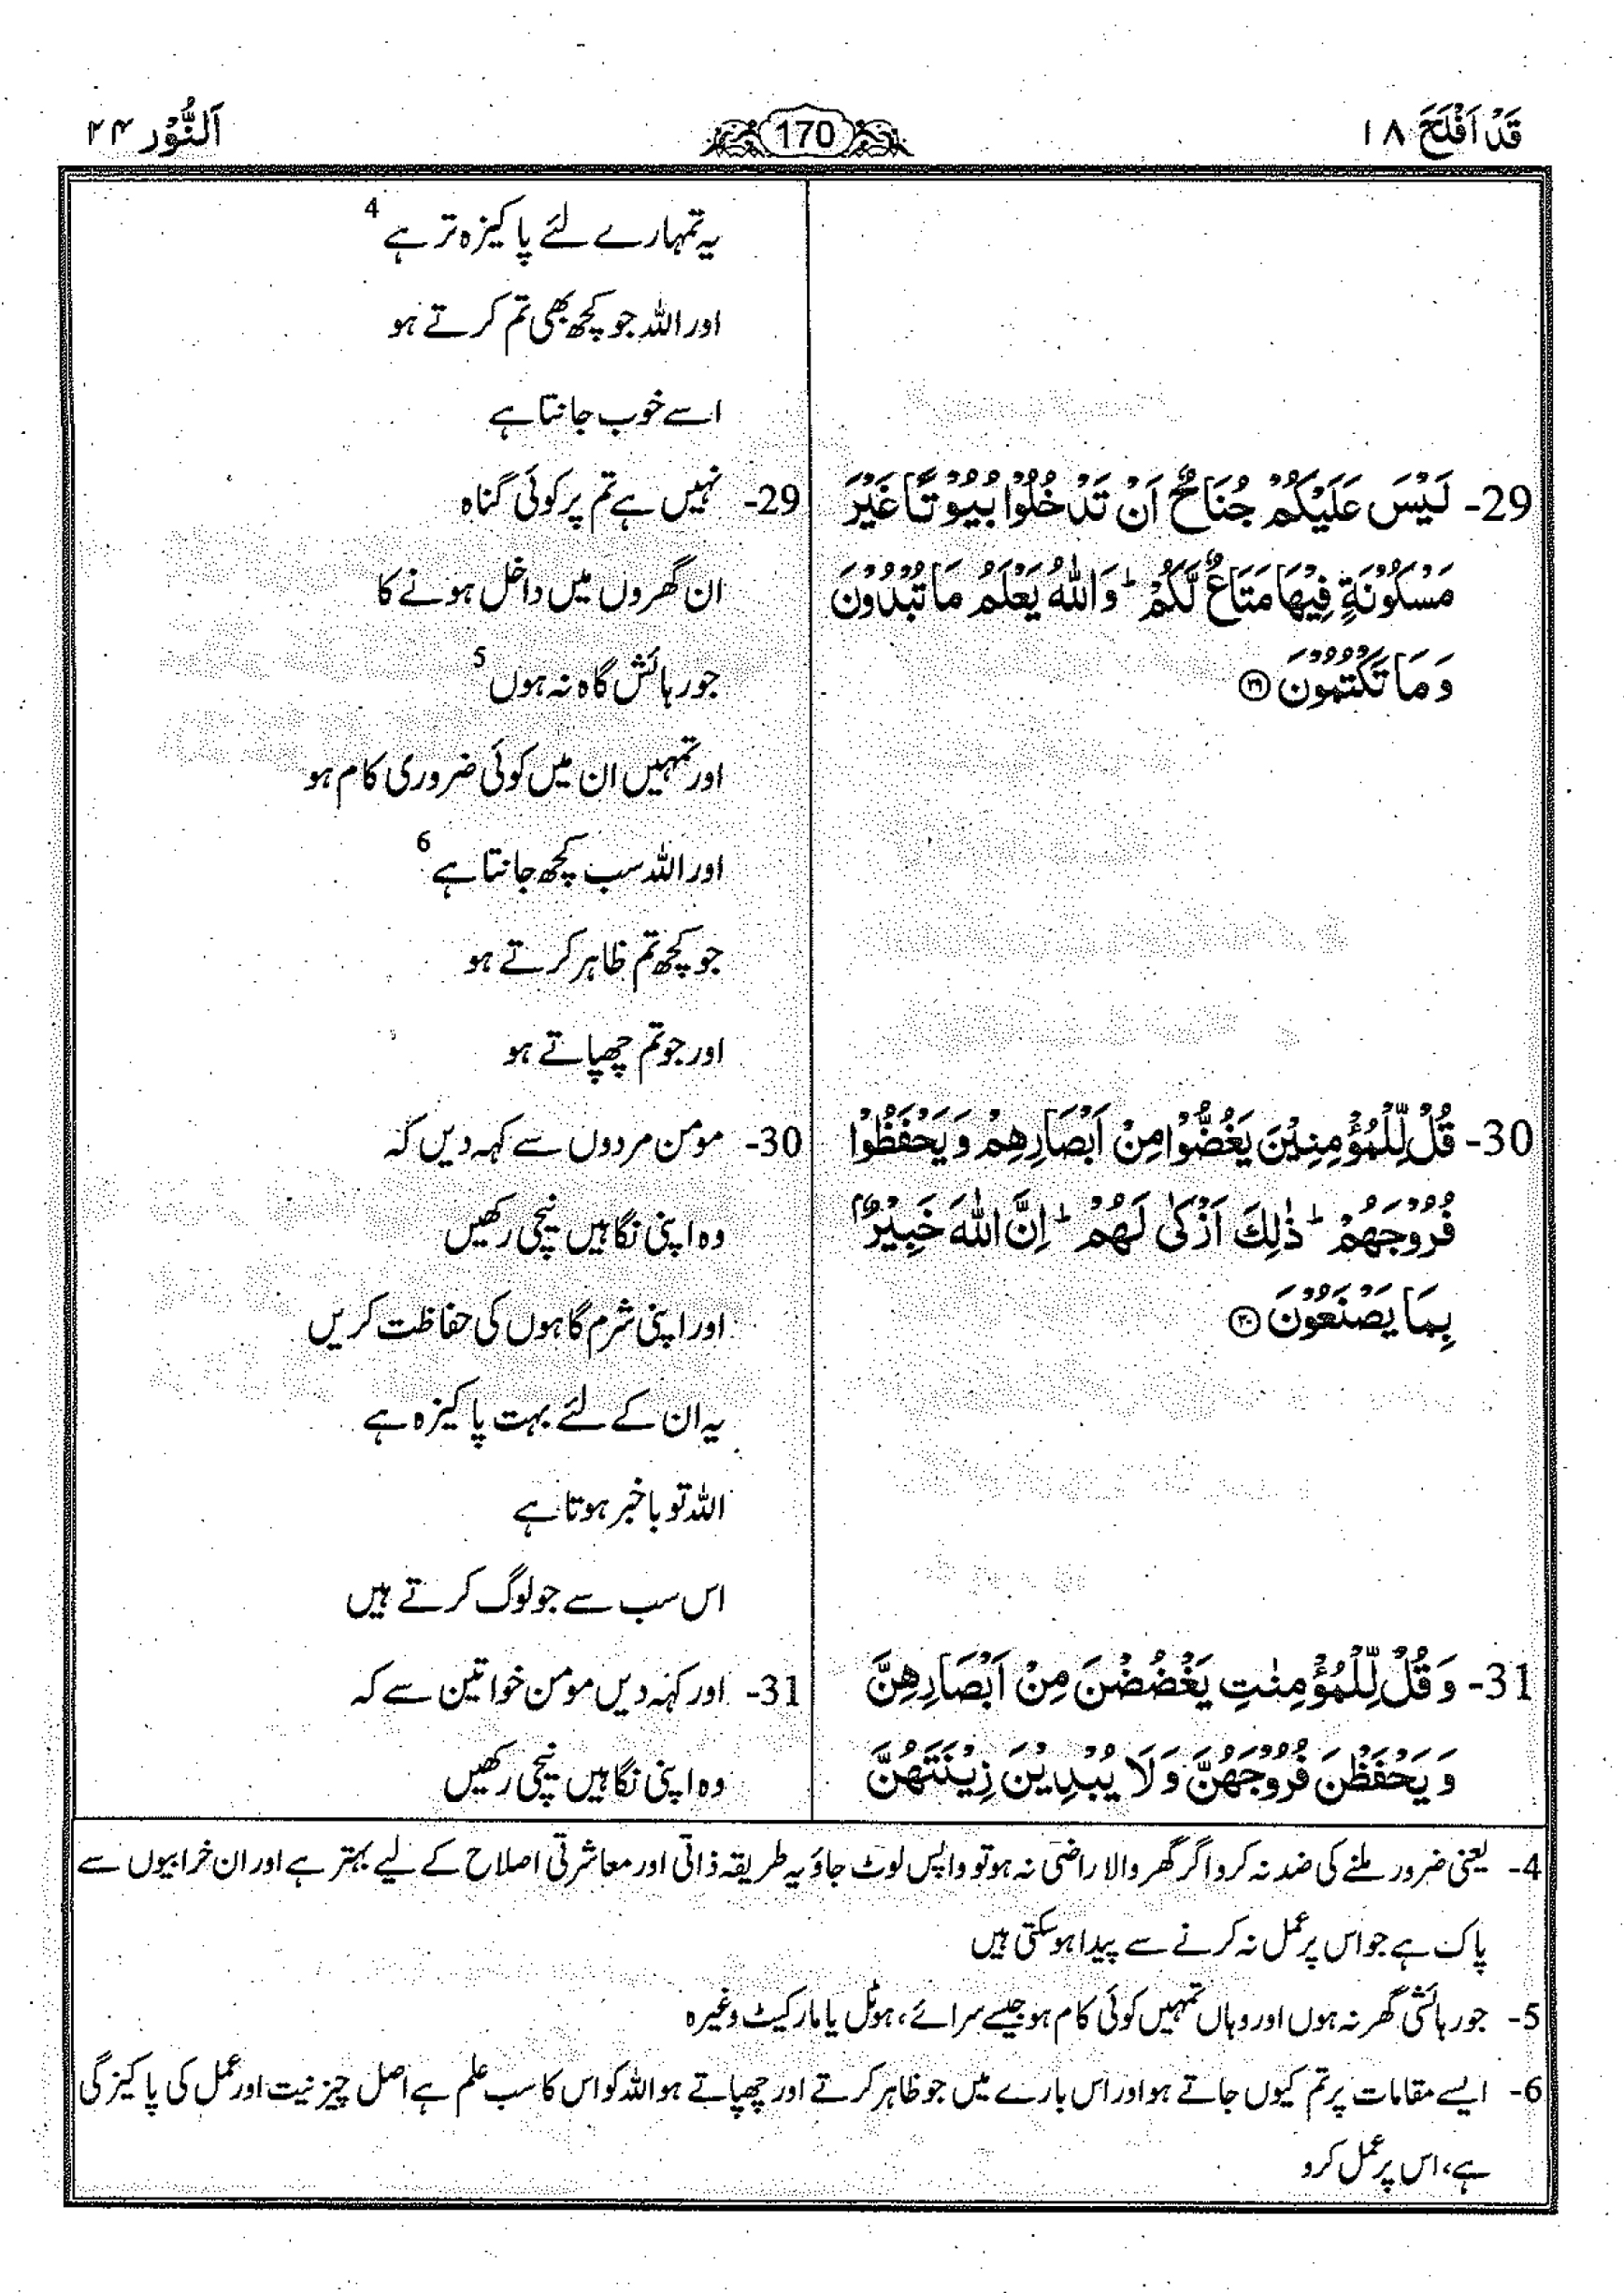 قَدْ اَفْلَحَ ۱۸
170
اَلنُّوْر ۲۴
یہ تمہارے لئے پاکیزہ تر ہے 4
اور اللہ جو کچھ بھی تم کرتے ہو
اسے خوب جانتا ہے
29- لَيْسَ عَلَيْكُمْ جُنَاحٌ اَنْ تَدْخُلُوْا بُيُوْتًا غَيْرَ
مَسْكُوْنَةٍ فِيْهَا مَتَاعٌ لَّكُمْ ؕ وَاللّٰهُ يَعْلَمُ مَا تُبْدُوْنَ
وَ مَا تَكْتُمُوْنَ ﴿۲۹﴾
29- نہیں ہے تم پر کوئی گناہ
ان گھروں میں داخل ہونے کا
جو رہائش گاہ نہ ہوں 5
اور تمہیں ان میں کوئی ضروری کام ہو
اور اللہ سب کچھ جانتا ہے 6
جو کچھ تم ظاہر کرتے ہو
اور جو تم چھپاتے ہو
30- قُلْ لِّلْمُؤْمِنِيْنَ يَغُضُّوْا مِنْ اَبْصَارِهِمْ وَ يَحْفَظُوْا
فُرُوْجَهُمْ ؕ ذٰلِكَ اَزْكٰى لَهُمْ ؕ اِنَّ اللّٰهَ خَبِيْرٌۢ
بِمَا يَصْنَعُوْنَ ﴿۳۰﴾
30- مومن مردوں سے کہہ دیں کہ
وہ اپنی نگاہیں نیچی رکھیں
اور اپنی شرم گاہوں کی حفاظت کریں
یہ ان کے لئے بہت پاکیزہ ہے
اللہ تو باخبر ہوتا ہے
اس سب سے جو لوگ کرتے ہیں
31- وَ قُلْ لِّلْمُؤْمِنٰتِ يَغْضُضْنَ مِنْ اَبْصَارِهِنَّ
وَ يَحْفَظْنَ فُرُوْجَهُنَّ وَ لَا يُبْدِيْنَ زِيْنَتَهُنَّ
31- اور کہہ دیں مومن خواتین سے کہ
وہ اپنی نگاہیں نیچی رکھیں
4- یعنی ضرور ملنے کی ضد نہ کرو اگر گھر والا راضی نہ ہو تو واپس لوٹ جاؤ یہ طریقہ ذاتی اور معاشرتی اصلاح کے لیے بہتر ہے اور ان خرابیوں سے
پاک ہے جو اس پر عمل نہ کرنے سے پیدا ہو سکتی ہیں
5- جو رہائشی گھر نہ ہوں اور وہاں تمہیں کوئی کام ہو جیسے سرائے، ہوٹل یا مارکیٹ وغیرہ
6- ایسے مقامات پر تم کیوں جاتے ہو اور اس بارے میں جو ظاہر کرتے اور چھپاتے ہو اللہ کو اس کا سب علم ہے اصل چیز نیت اور عمل کی پاکیزگی
ہے، اس پر عمل کرو